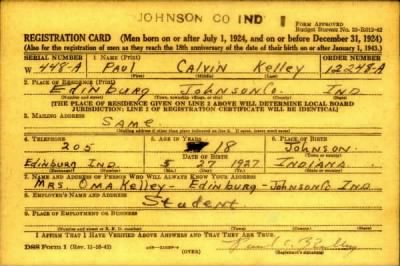 JOHNSON CO IND 1
FORM APPROVED
REGISTRATION CARD—(Men born on or after July 1, 1924, and on or before December 31, 1924)
(Also for the registration of men as they reach the 18th anniversary of the date of their birth on or after January 1, 1943.)
SERIAL NUMBER 1. NAME (Print) ORDER NUMBER
W 448-A Paul Calvin Kelley 12248-A
(First) (Middle) (Last)
2. PLACE OF RESIDENCE (Print)
Edinburg Johnson Co. Ind
(Number and street) (Town, township, village, or city) (County) (State)
[THE PLACE OF RESIDENCE GIVEN ON LINE 2 ABOVE WILL DETERMINE LOCAL BOARD
JURISDICTION; LINE 2 OF REGISTRATION CERTIFICATE WILL BE IDENTICAL]
3. MAILING ADDRESS
Same
(Mailing address if other than place indicated on line 2. If same, insert word same)
4. TELEPHONE 5. AGE IN YEARS 6. PLACE OF BIRTH
205 18 Johnson
DATE OF BIRTH (Town or county)
Edinburg Ind. 5 27 1927 Indiana
(Exchange) (Number) (Mo.) (Day) (Yr.) (State or country)
7. NAME AND ADDRESS OF PERSON WHO WILL ALWAYS KNOW YOUR ADDRESS
Mrs. Oma Kelley - Edinburg - Johnson Co Ind.
8. EMPLOYER'S NAME AND ADDRESS
Student
9. PLACE OF EMPLOYMENT OR BUSINESS
(Number and street or R. F. D. number) (Town) (County) (State)
I AFFIRM THAT I HAVE VERIFIED ABOVE ANSWERS AND THAT THEY ARE TRUE.
DSS Form 1 (Rev. 11-16-42) (OVER)